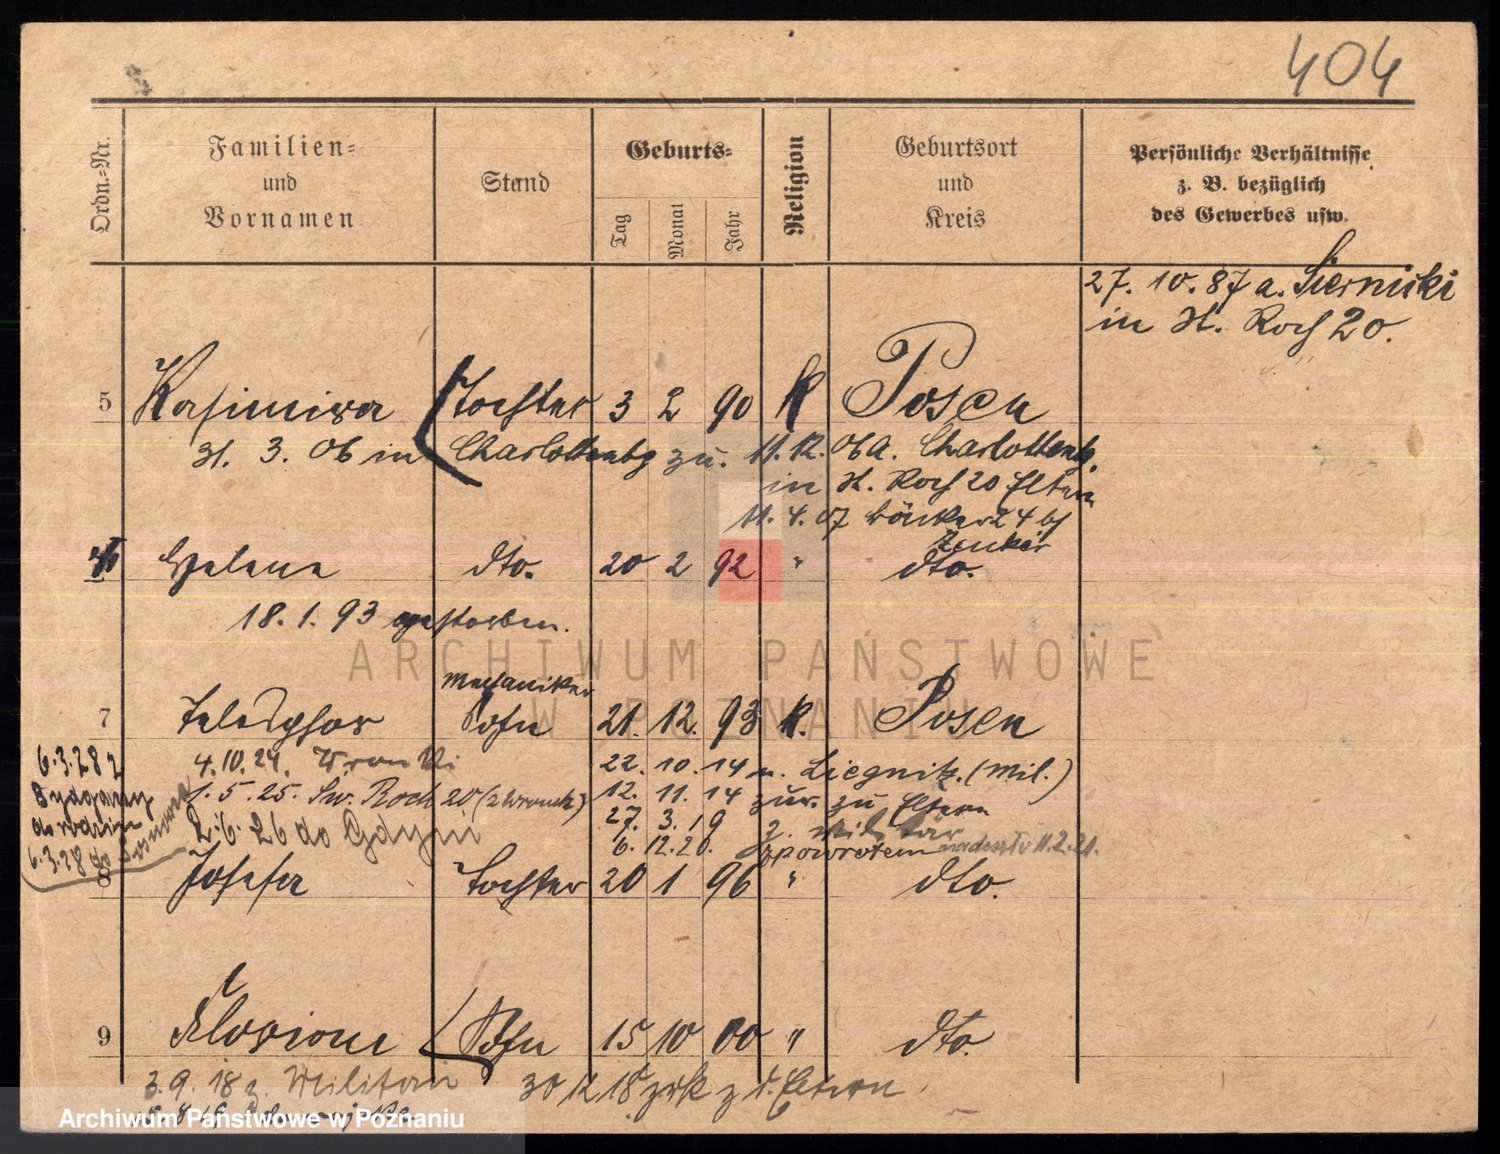 404
Ordn.-Nr.
Familien-
und
Vornamen
Stand
Geburts-
Tag
Monat
Jahr
Religion
Geburtsort
und
Kreis
Persönliche Verhältnisse
z. B. bezüglich
des Gewerbes usw.
27. 10. 87 a. Siernicki
in St. Roch 20.
5 Kasimira Tochter 3 2 90 K Posen
31. 3. 06 in Charlottenbg zu. 11.12. 06 a. Charlottenbg.
in St. Roch 20 Eltern
11. 4. 07 Bäcker 24 bs
Zenker
Helene dto. 20 2 92 " dto.
18. 1. 93 gestorben.
Mechaniker
7 Telesphor Sohn 21. 12. 93 k. Posen
4. 10. 24. Wronki 22. 10. 14 n. Liegnitz. (Mil.)
1. 5. 25. Św. Roch 20 (z Wronek) 12. 11. 14 zur. zu Eltern
2. 6. 26 do Gdyni 27. 3. 19 z. Militär
6. 12. 20. zpowrotem 11. 2. 21.
6. 3. 28 z
Bydgoszcz
do rodzin
6. 3. 28 do Poznania
8 Josefa Tochter 20 1 96 " dto.
9 Florian Sohn 15 10 00 " dto.
3. 9. 18 z. Militär 30 12 18 zrk z d. Eltern
ARCHIWUM PAŃSTWOWE
W POZNANIU
Archiwum Państwowe w Poznaniu